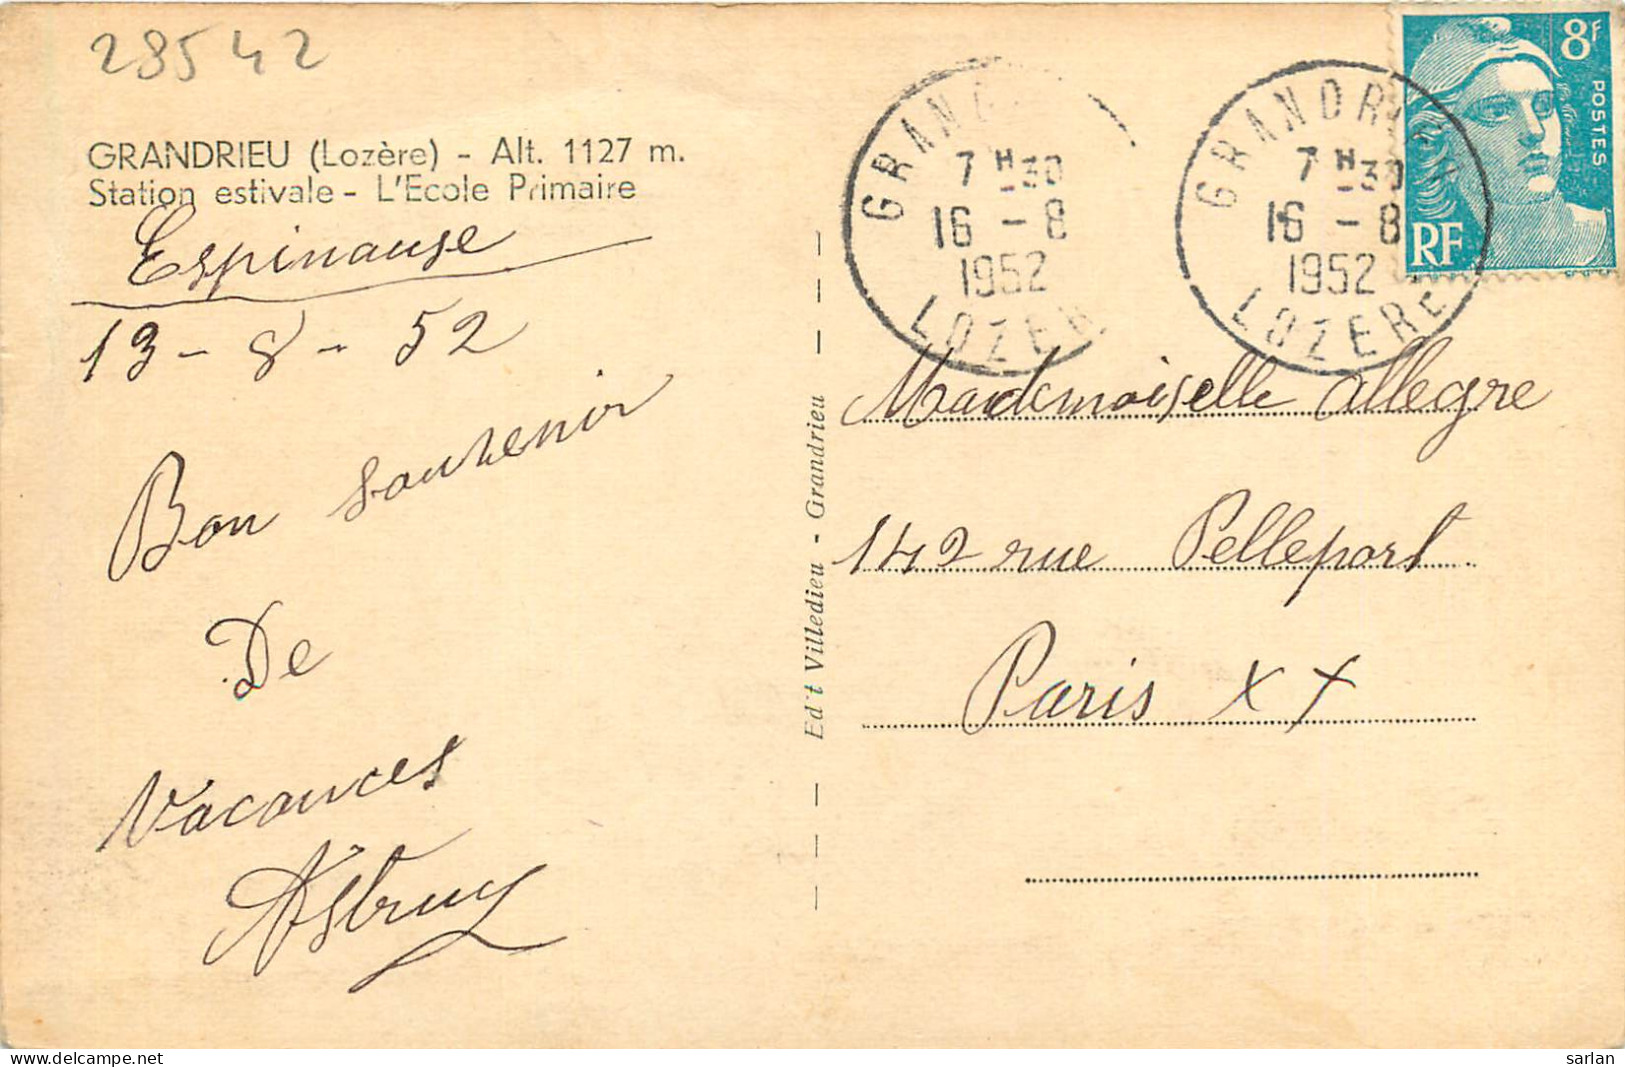 28542
GRANDRIEU (Lozère) - Alt. 1127 m.
Station estivale - L'Ecole Primaire
Espinause
13-8-52
Bon souvenir
De
Vacances
Astruy
Ed't Villedieu - Grandrieu
GRAND
7 H 30
16 - 8
1952
LOZER
GRANDRIEU
7 H 30
16 - 8
1952
LOZERE
8F
POSTES
RF
Mademoiselle Allegre
142 rue Pelleport
Paris XX
www.delcampe.net
sarlan